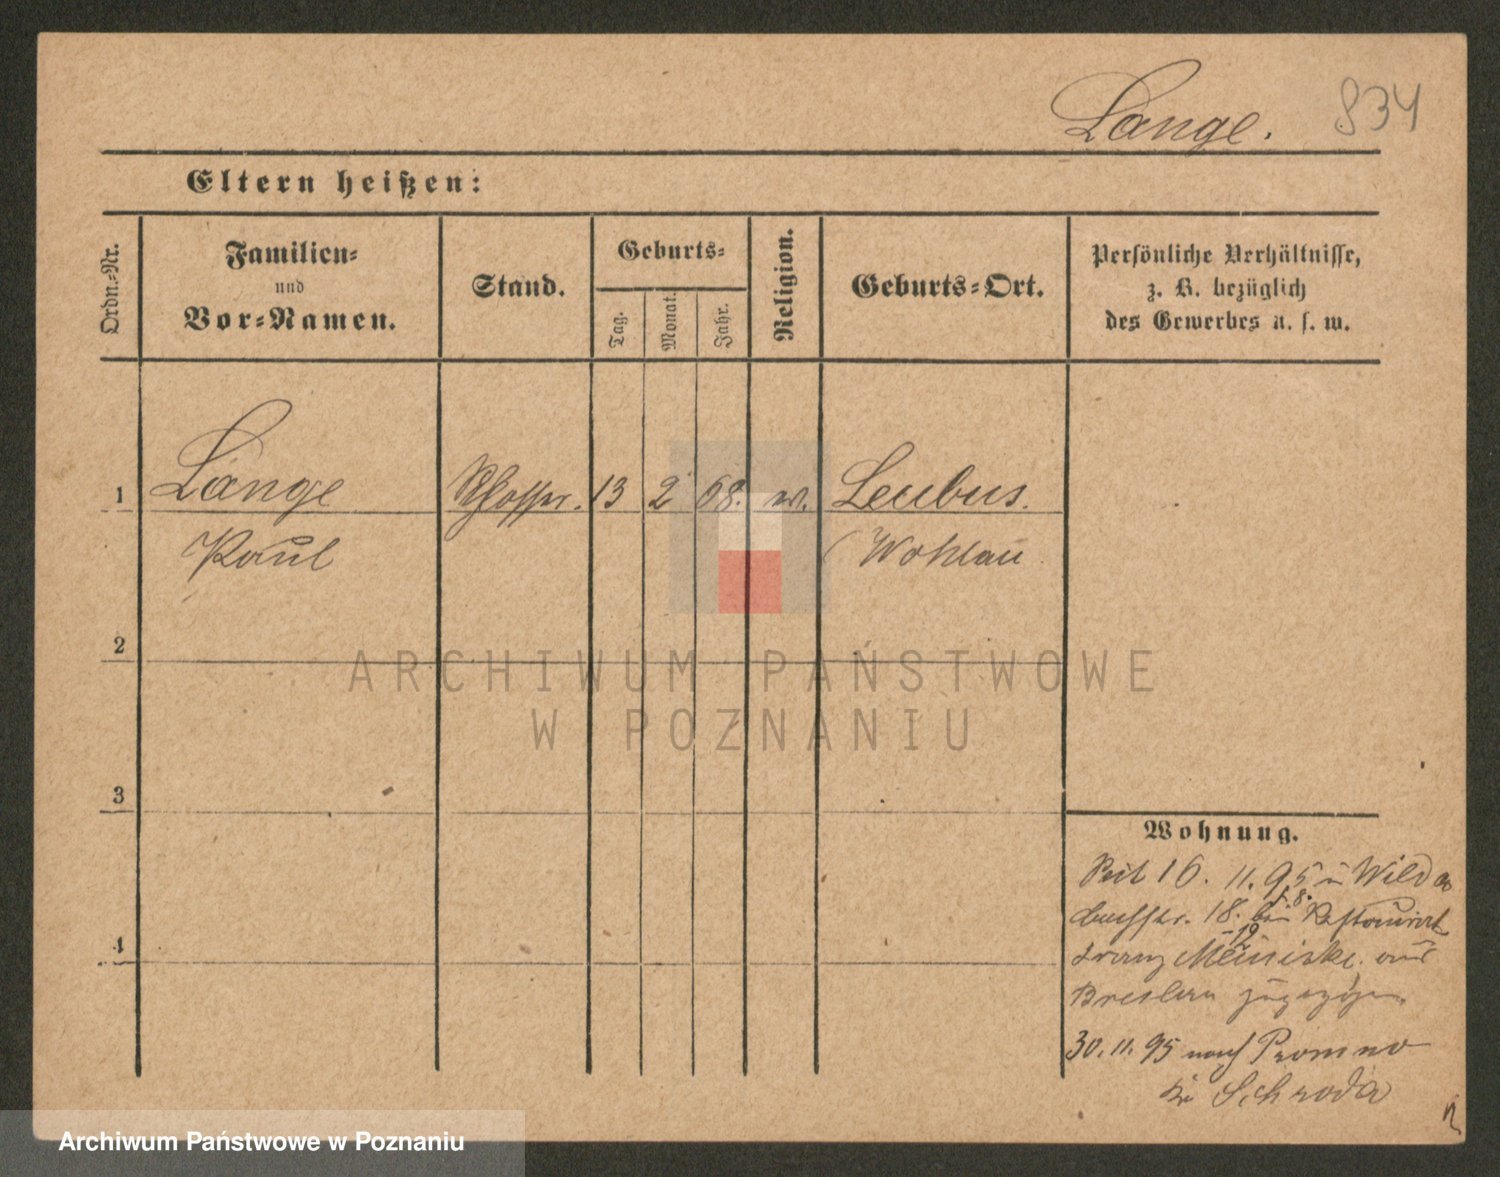 Lange.
834
Eltern heißen:
Ordn.-Nr.
Familien-
und
Vor-Namen.
Stand.
Geburts-
Tag.
Monat.
Jahr.
Religion.
Geburts-Ort.
Persönliche Verhältnisse,
z. B. bezüglich
des Gewerbes u. s. w.
1
Lange
Schlosser.
13
2
68.
ev.
Leubus.
Paul
(Wohlau
2
3
4
Wohnung.
Seit 16. 11. 95 in Wilda
18. bei Restaurat
Franz aus
Breslau zugezogen.
30. 11. 95 nach Promno
Kr Schroda
ARCHIWUM PAŃSTWOWE
W POZNANIU
Archiwum Państwowe w Poznaniu